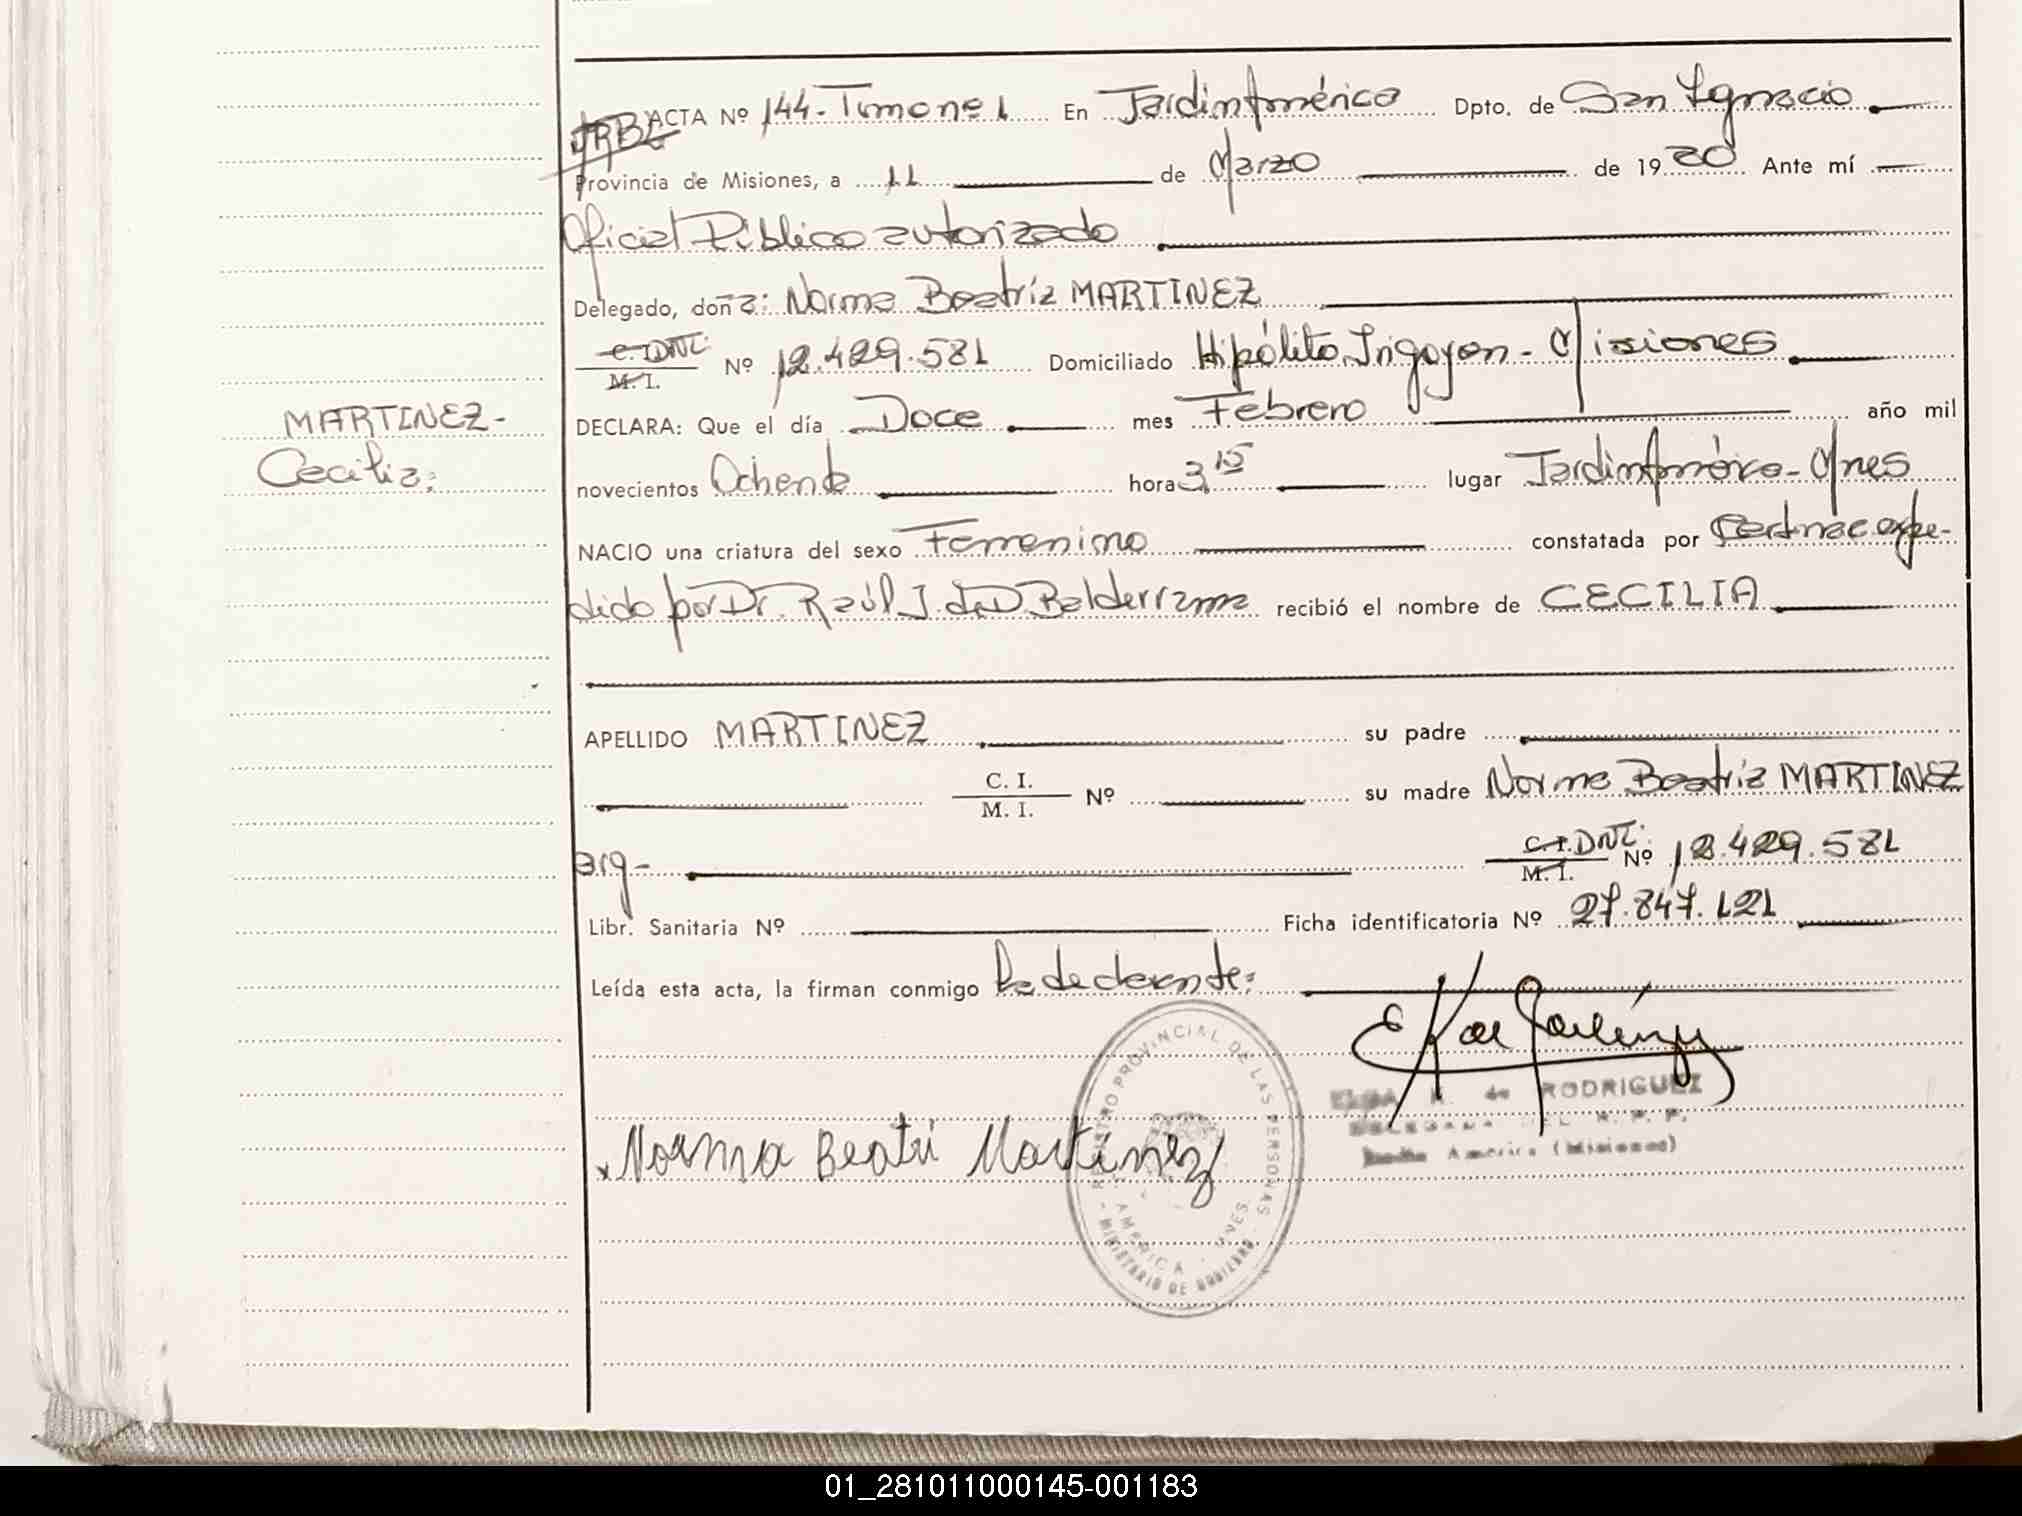 ACTA Nº 144- Tomo nº 1 En Jardín América Dpto. de San Ignacio
Provincia de Misiones, a 11 de Marzo de 1980 Ante mí
Oficial Público autorizado
Delegado, doña: Norma Beatríz MARTINEZ
C. I. DNI: M. I. Nº 12.429.581 Domiciliado Hipólito Irigoyen - Misiones
DECLARA: Que el día Doce mes Febrero año mil
MARTINEZ-
novecientos Ochenta hora 3,15 lugar Jardín América - Mnes
Cecilia:
NACIO una criatura del sexo Femenino constatada por Cert.nac.expe-
dido por Dr. Raúl J. de D. Balderrama recibió el nombre de CECILIA
APELLIDO MARTINEZ su padre
C. I. M. I. Nº su madre Norma Beatríz MARTINEZ
arg- C. I. DNI: M. I. Nº 12.429.581
Libr. Sanitaria Nº Ficha identificatoria Nº 27.847.121
Leída esta acta, la firman conmigo la declarante:
REGISTRO PROVINCIAL DE LAS PERSONAS
AMERICA - MNES.
- MINISTERIO DE GOBIERNO -
K. de RODRIGUEZ
DELEGADA DEL R. P. P.
Jardín América (Misiones)
Norma Beatri Martínez
01_281011000145-001183